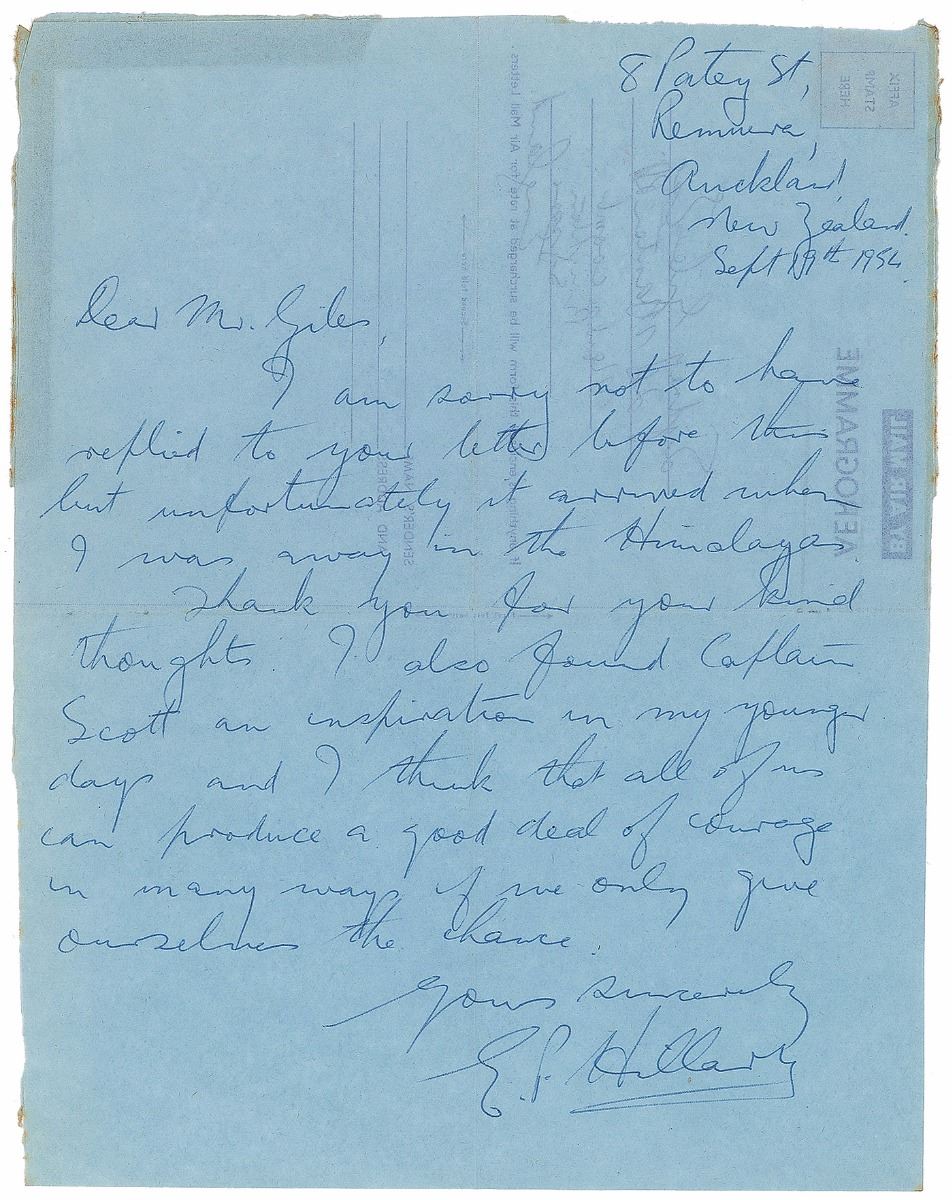 8 Patey St,
Remuera,
Auckland
New Zealand.
Sept 19th 1954
Dear Mr. Giles,
I am sorry not to have
replied to your letter before this
but unfortunately it arrived when
I was away in the Himalayas.
Thank you for your kind
thoughts. I also found Captain
Scott an inspiration in my younger
days and I think that all of us
can produce a good deal of courage
in many ways if we only give
ourselves the chance.
Yours sincerely
E.P. Hillary
AFFIX
STAMP
HERE
BY AIR MAIL
AEROGRAMME
form will be surcharged at rate for Air Mail Letters.
Second fold here
SENDER'S NAME
AND ADDRESS